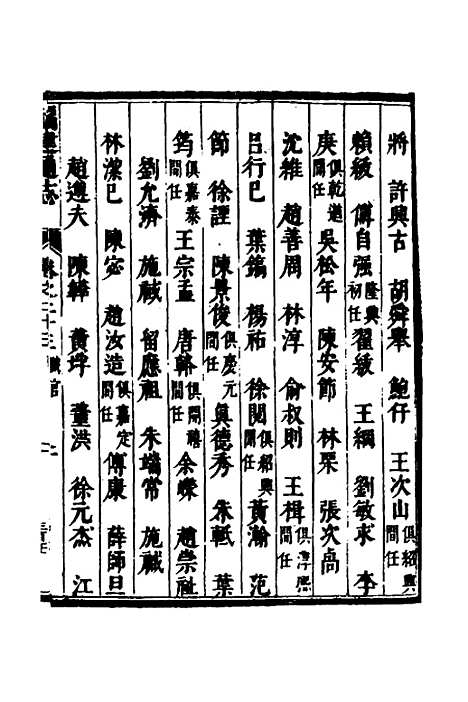 將　許興古　胡舜舉　鮑仔　王次山俱紹興間任
賴緩　傅自强隆興初任　翟紱　王綱　劉敏求　李
庚俱乾道間任　吳松年　陳安節　林栗　張次卨
沈維　趙善周　林淳　俞叔則　王楫俱淳熙間任
呂行巳　葉鎬　楊祐　徐閎俱紹興間任　黃瀚　范
節　徐諲　陳景俊俱慶元間任　吳德秀　朱軧　葉
筠俱嘉泰間任　王宗孟　唐輅俱開禧間任　余嶸　趙崇祉
劉允濟　施諴　留應祖　朱端常　施諴
林潔巳　陳宓　趙汝造俱嘉定間任　傅康　薛師旦
趙遵夫　陳韡　黃垺　董洪　徐元杰　江
福建通志　卷之二十三　職官